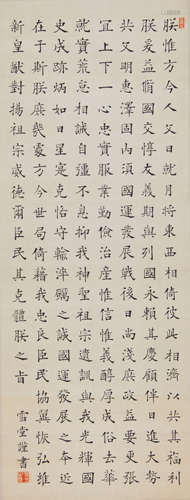 朕惟方今人文日就月將東西相倚彼此相濟以共其福利
朕爰益修國交惇友義期與列國永賴其慶顧伴日進大勢
共文明惠澤固內須國運發展戰後日尚淺庶政益要更張
宜上下一心忠實服業勤儉治產惟信惟義醇厚成俗去華
就實荒怠相誡自彊不息抑我神聖祖宗遺訓與我光輝國
史成跡炳如日星寔克恪守輸淬礪之誠國運發展之本近
在于斯朕庶幾處方今世局倚藉我忠良臣民協翼恢弘維
新皇猷對揚祖宗威德爾臣民其克體朕之旨
雪堂謹書